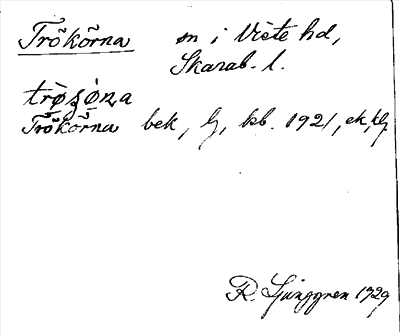 Trökörna sn i Viste hd,
Skarab. l.
trø̀ʂø̀ṇa
Trökörna bek, lj, kb. 1921, ek, klj
R. Ljunggren 1929